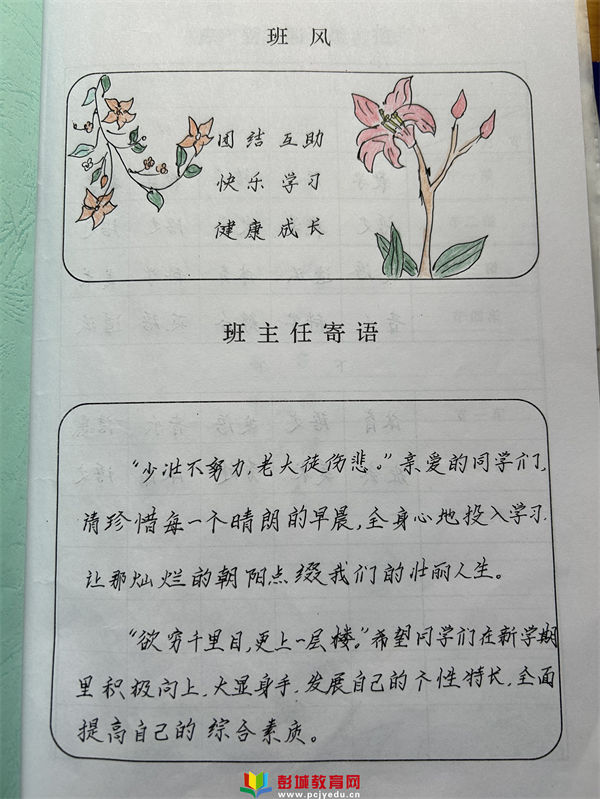 班风
团结互助
快乐学习
健康成长
班主任寄语
“少壮不努力,老大徒伤悲。”亲爱的同学们,
请珍惜每一个晴朗的早晨,全身心地投入学习.
让那灿烂的朝阳点缀我们的壮丽人生。
“欲穷千里目,更上一层楼。”希望同学们在新学期
里积极向上,大显身手,发展自己的个性特长,全面
提高自己的综合素质。
彭城教育网
www.pcjyedu.cn